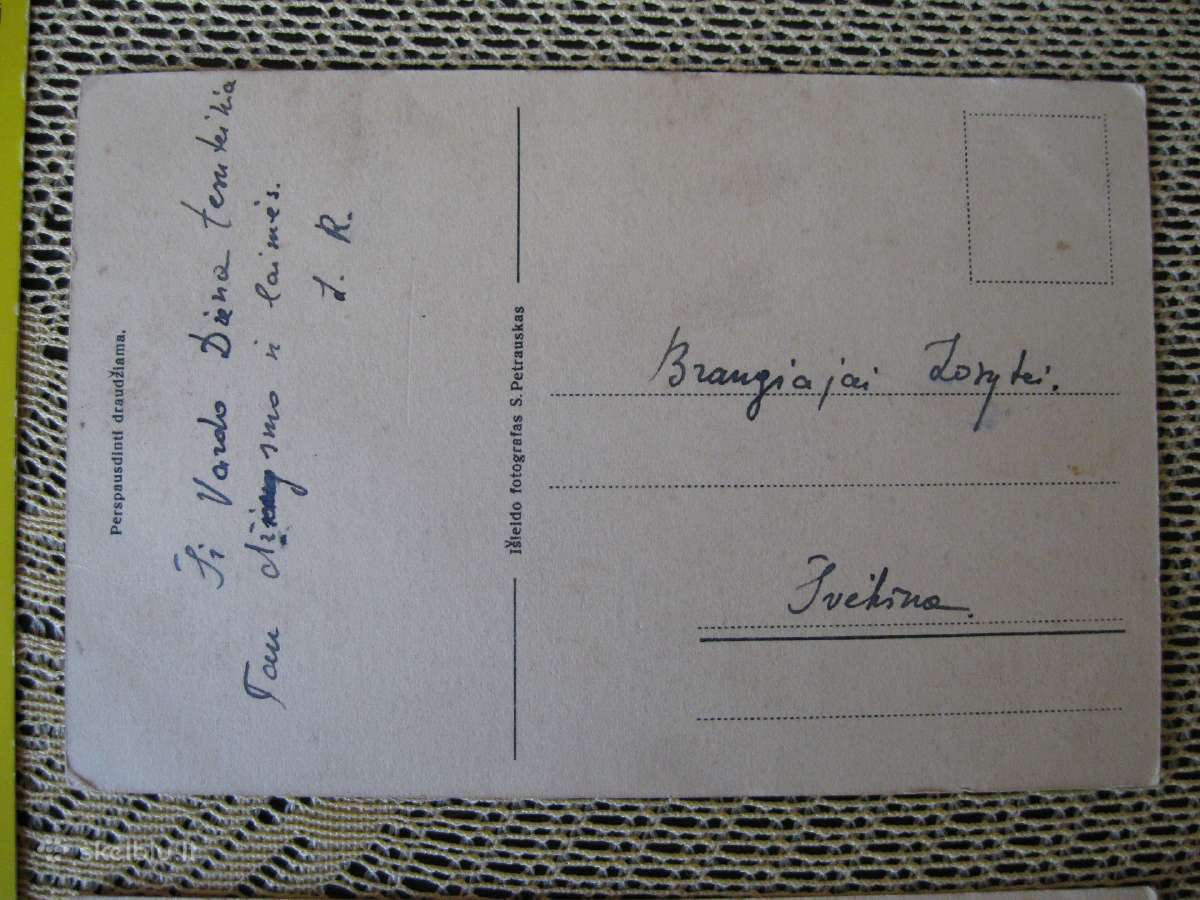 Perspausdinti draudžiama.
Ši Vardo Diena tesuteikia
Tau džiugsmo ir laimės.
J. R.
Išleido fotografas S. Petrauskas
Brangiajai Zosytei.
Švėkšna.
skelbiu.lt